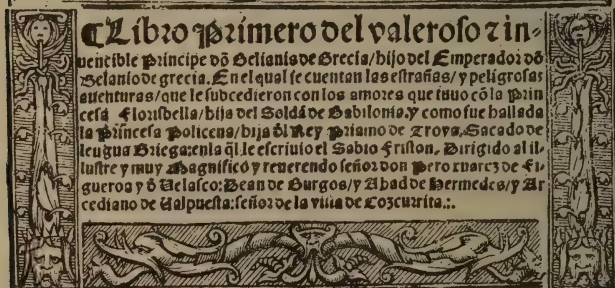 ¶Libro Primero del valeroso ⁊ in-
uencible Principe dō Belianis de Grecia/hijo del Emperador dō
Belanio de grecia. En el qual se cuentan las estrañas/y peligrosas
auenturas/que le subcedieron con los amores que tuuo cō la Prin
cesa Florisbella/hija del Soldā de Babilonia. y como fue hallada
la Princesa Policena/hija dl Rey Priamo de Troya, Sacado de
leugua Griega: en la ql le escriuio el Sabio Friston. Dirigido al il-
lustre y muy Magnifico y reuerendo señor don Pero xuarez de Fi-
gueroa y đ Uelasco: Dean de Burgos/y Abad de Hermedes/y Ar
cediano de Ualpuesta: señor de la villa de Cozcurrita.:.